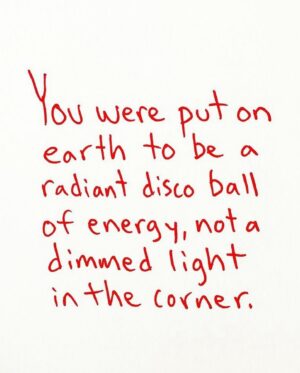 You were put on
earth to be a
radiant disco ball
of energy, not a
dimmed light
in the corner.